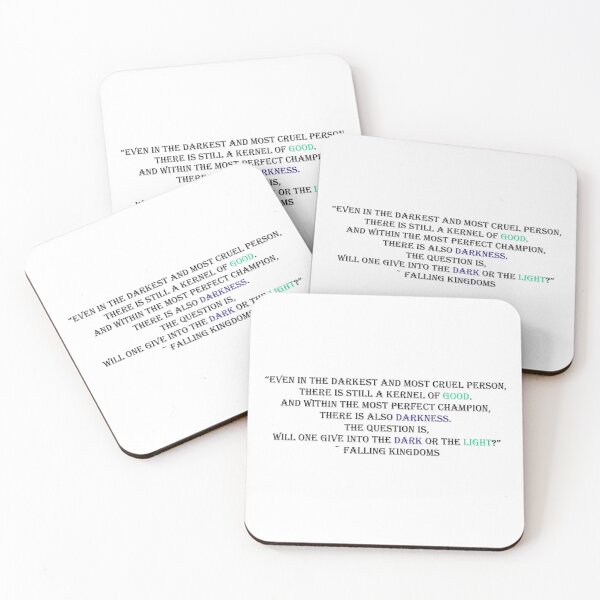 “EVEN IN THE DARKEST AND MOST CRUEL PERSON
THERE IS STILL A KERNEL OF GOOD.
AND WITHIN THE MOST PERFECT
DARKNESS.
OR THE
“EVEN IN THE DARKEST AND MOST CRUEL PERSON,
THERE IS STILL A KERNEL OF GOOD.
AND WITHIN THE MOST PERFECT CHAMPION,
THERE IS ALSO DARKNESS.
THE QUESTION IS,
WILL ONE GIVE INTO THE DARK OR THE LIGHT?”
~ FALLING KINGDOMS
“EVEN IN THE DARKEST AND MOST CRUEL PERSON,
THERE IS STILL A KERNEL OF GOOD.
AND WITHIN THE MOST PERFECT CHAMPION,
THERE IS ALSO DARKNESS.
THE QUESTION IS,
WILL ONE GIVE INTO THE DARK OR THE LIGHT?”
~ FALLING KINGDOMS
“EVEN IN THE DARKEST AND MOST CRUEL PERSON,
THERE IS STILL A KERNEL OF GOOD.
AND WITHIN THE MOST PERFECT CHAMPION,
THERE IS ALSO DARKNESS.
THE QUESTION IS,
WILL ONE GIVE INTO THE DARK OR THE LIGHT?”
~ FALLING KINGDOMS